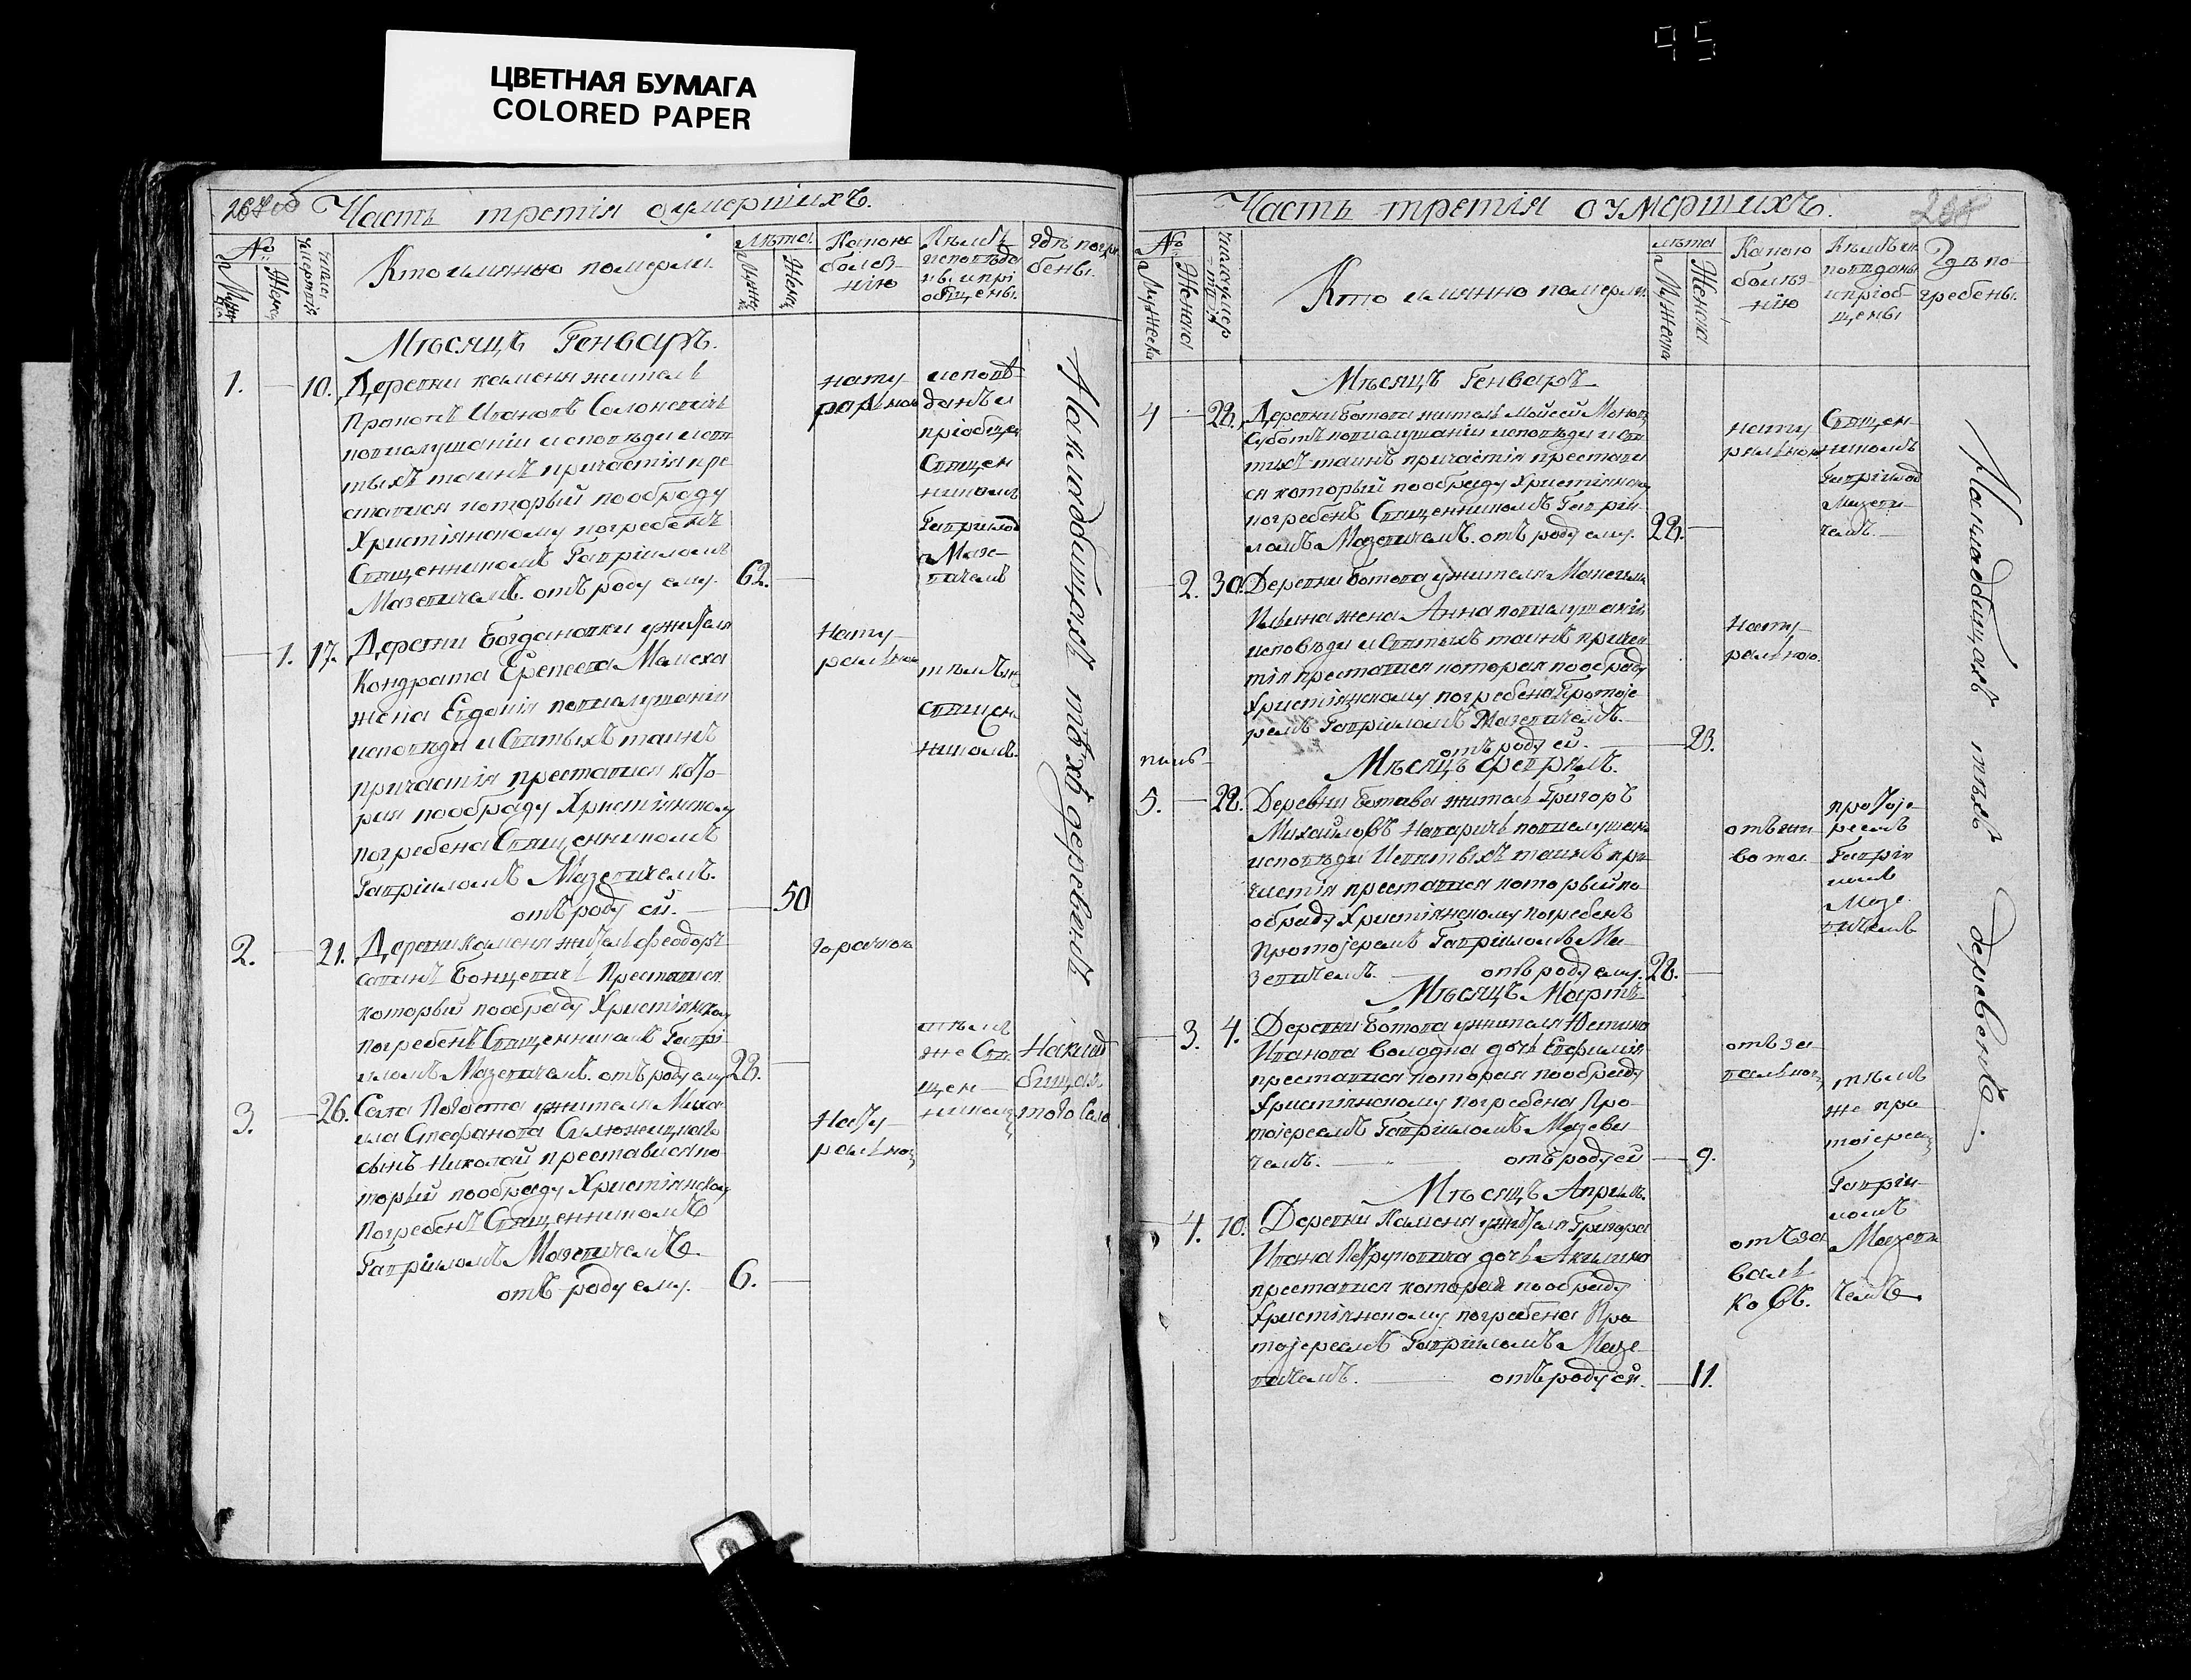 95
ЦВЕТНАЯ БУМАГА
COLORED PAPER
267об
Часть третія оумершихъ.
№
Мужеска
Женска
число смертей
Кто имянно померли.
Лѣта
Мужеска
Женска
Какою
болѣз-
нію
Кѣмъ
исповѣда
ны и прі
общены.
Гдѣ погре
бены.
Мѣсяцъ Генварь.
1. — 10. Деревни каменя житель
Прокопъ Ивановъ
по выслушаніи исповѣди и свя
тыхъ таинъ причастія пре
ставися который по обряду
Христіянскому погребенъ
Священникомъ Гавріиломъ
Мазевичемъ. отъ роду ему. 62. —
нату
ральною
исповѣ
данъ и
пріобщен
Священ
никомъ
Гавріилом
Мазе
вичемъ
— 1. 17. Деревни Богдановки жителя
Кондрата Еремеева
жена Евдокія по выслушаніи
исповѣди и Святыхъ таинъ
причастія преставися кото-
рая по обряду Христіянскому
погребена Священникомъ
Гавріиломъ Мазевичемъ.
отъ роду ей. — 50
Нату
ральною
тѣмъ же
священ
никомъ.
2. — 21. Деревни каменя житель Феодоръ
Савинъ Преставися
который по обряду Христіянскому
погребенъ Священникомъ Гаврі
иломъ Мазевичемъ. отъ роду ему 23. —
горячкою
тѣмъ
же Свя
щен
никомъ
На клад
бищахъ
того села
3. — 26. Села Погоста жителя Миха
ила Стефанова
сынъ Николай преставися ко
торый по обряду Христіянскому
Погребенъ Священникомъ
Гавріиломъ Мазевичемъ.
отъ роду ему. 6. —
Нату
ральною
На кладбищахъ тѣхъ деревень
Часть третія оумершихъ.
268
№
Мужеска
Женска
число умер
Кто имянно померли
лѣта
Мужеска
Женска
Какою
болѣз-
нію
Кѣмъ ис
повѣданы
и пріоб-
щены
Гдѣ по-
гребены.
Мѣсяцъ Генварь
4 — 28. Деревни Ботова житель Мойсей
по выслушаніи исповѣди и свя
тихъ таинъ причастія престави
ся который по обряду Христіянскому
погребенъ Священникомъ Гаврі
иломъ Мазевичемъ. отъ роду ему. 22. —
нату
ральною
Священ
никомъ
Гавріилом
Мазеви
чемъ.
— 2. 30. Деревни Ботова жителя
Ильина жена Анна по выслушаніи
исповѣди и Святыхъ таинъ причас
тія преставися которая по обряду
Христіянскому погребена Протоје
реемъ Гавріиломъ Мазевичемъ.
отъ роду ей. — 23.
Нату
ральною.
Мѣсяцъ Февраль.
5. — 22. Деревни Ботова житель Григорь
Михайловъ по выслушаніи
исповѣди И святыхъ таинъ при
частія преставися который по
обряду Христіянскому погребенъ
Протоjереемъ Гавріиломъ Ма
зевичемъ. — отъ роду ему. 28. —
отъ жи
вота
протоје
реемъ
Гаврііл
омъ
Мазе
вичемъ
Мѣсяцъ Мартъ
— 3. 4. Деревни Ботова жителя Юстина
Иванова дочь Евфимія
преставися которая по обряду
Христіянскому погребена Про
тоjереемъ Гавріиломъ Мазеви
чемъ. — отъ роду ей — 9.
отъ за
вальною
тѣмъ
же про
тоjереем
Гавріи
ломъ
Мазеви
чемъ
Мѣсяцъ Априль.
— 4. 10. Деревни Каменя жителя Григора
Ивана дочь Акилина
преставися которая по обряду
Христіянскому погребена Про
тоjереемъ Гавріиломъ Мазе
вичемъ. — отъ роду ей. — 11.
отъ за
валь
ковъ.
На кладбищахъ тѣхъ деревень.